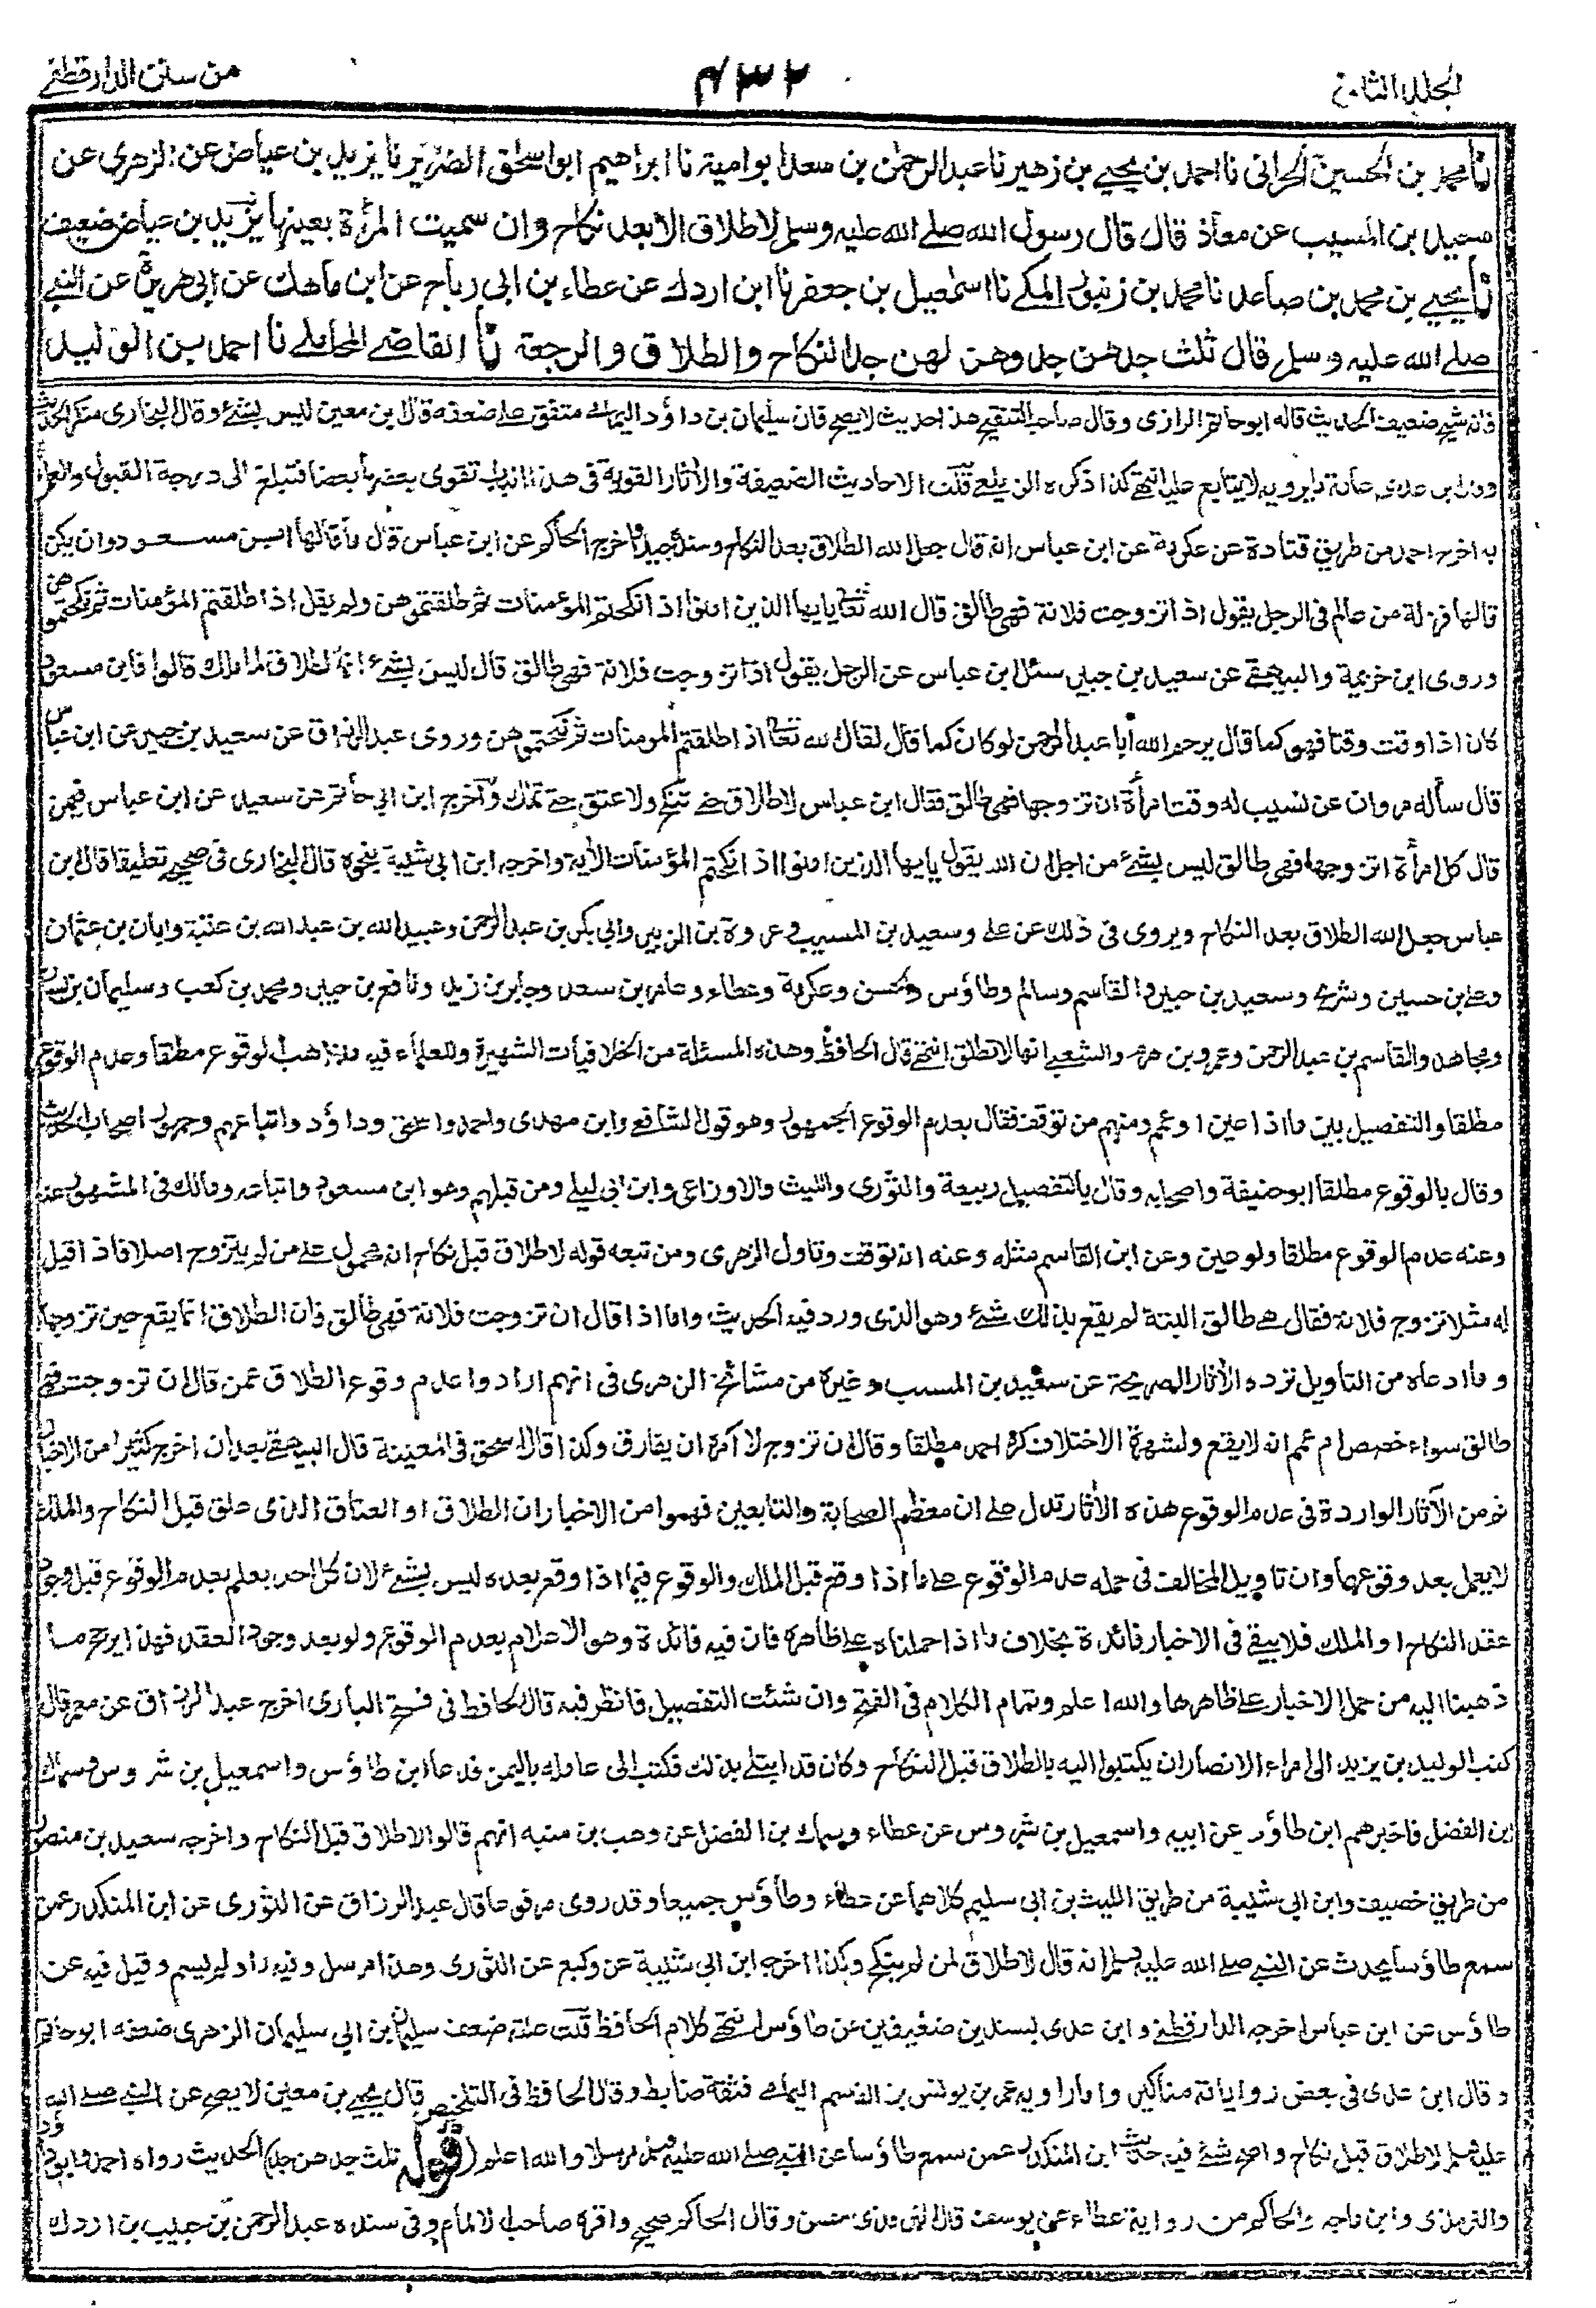 المجلد الثاني
٤٣٢
من سنن الدارقطني
نا محمد بن الحسين الحراني نا احمد بن يحيى بن زهير نا عبد الرحمن بن سعد ابو امية نا ابراهيم ابو اسحق الضرير نا يزيد بن عياض عن الزهري عن
سعيد بن المسيب عن معاذ قال قال رسول الله صلى الله عليه وسلم لا طلاق الا بعد نكاح وان سميت المرأة بعينها يزيد بن عياض ضعيف
نا يحيى بن محمد بن صاعد نا محمد بن زنبور المكي نا اسمعيل بن جعفر نا ابن اردك عن عطاء بن ابي رباح عن ابن ماهك عن ابي هريرة عن النبي
صلى الله عليه وسلم قال ثلث جدهن جد وهزلهن جد النكاح والطلاق والرجعة نا القاضي المحاملي نا احمد بن الوليد
فانه شيخ ضعيف الحديث قاله ابو حاتم الرازي وقال صاحب التنقيح هذا حديث لا يصح فان سليمان بن داؤد اليمامي متفق على ضعفه قال ابن معين ليس بشئ وقال البخاري منكر الحديث
وقال ابن عدي عامة ما يرويه لا يتابع عليه انتهى كذا ذكره الزيلعي قلت الاحاديث الضعيفة والآثار القوية في هذا الباب تقوى بعضها بعضا فتبلغ الى درجة القبول والعمل
به اخرج احمد من طريق قتادة عن عكرمة عن ابن عباس انه قال جعل الله الطلاق بعد النكاح وسنده جيد واخرج الحاكم عن ابن عباس قال ما قالها ابن مسعود وان يكن
قالها فزلة من عالم في الرجل يقول اذا تزوجت فلانة فهي طالق قال الله تعالى يايها الذين امنوا اذا نكحتم المؤمنات ثم طلقتموهن ولم يقل اذا طلقتم المؤمنات ثم نكحتموهن
وروى ابن خزيمة والبيهقي عن سعيد بن جبير سئل ابن عباس عن الرجل يقول اذا تزوجت فلانة فهي طالق قال ليس بشئ انما الطلاق لما ملك قالوا فابن مسعود
كان اذا وقت وقتا فهو كما قال يرحم الله ابا عبد الرحمن لو كان كما قال لقال الله تعالى اذا طلقتم المومنات ثم نكحتموهن وروى عبد الرزاق عن سعيد بن جبير عن ابن عباس
قال سأله مروان عن نسيب له وقت امرأة ان تزوجها فهي طالق فقال ابن عباس لا طلاق حتى تنكح ولا عتق حتى تملك وأخرج ابن ابي حاتم عن سعيد عن ابن عباس فيمن
قال كل امرأة اتزوجها فهي طالق ليس بشئ من اجل ان الله يقول يايها الذين امنوا اذا نكحتم المؤمنات الأية واخرجه ابن ابي شيبة بنحوه قال البخاري في صحيحه تعليقا قال ابن
عباس جعل الله الطلاق بعد النكاح ويروى في ذلك عن علي وسعيد بن المسيب وعروة بن الزبير وابي بكر بن عبد الرحمن وعبيد الله بن عبد الله بن عتبة وابان بن عثمان
وعلي بن حسين وشريح وسعيد بن جبير والقاسم وسالم وطاؤس والحسن وعكرمة وعطاء وعامر بن سعد وجابر بن زيد ونافع بن جبير ومحمد بن كعب وسليمان بن يسار
ومجاهد والقاسم بن عبد الرحمن وعمرو بن هرم والشعبي انها لا تطلق انتهى قال الحافظ وهذه المسئلة من الخلافيات الشهيرة وللعلماء فيه مذاهب الوقوع مطلقا وعدم الوقوع
مطلقا والتفصيل بين ما اذا عين او عمم ومنهم من توقف فقال بعدم الوقوع الجمهور وهو قول الشافعي وابن مهدي واحمد واسحق وداؤد واتباعهم وجمهور اصحاب الحديث
وقال بالوقوع مطلقا ابو حنيفة واصحابه وقال بالتفصيل ربيعة والثوري والليث والاوزاعي وابن ابي ليلى ومن قبلهم وهو ابن مسعود واتباعه ومالك في المشهور عنه
وعنه عدم الوقوع مطلقا ولو حين وعن ابن القاسم مثله وعنه انه توقف وتاول الزهري ومن تبعه قوله لا طلاق قبل نكاح انه محمول على من لم يتزوج اصلا فاذا قيل
له مثلا تزوج فلانة فقال هي طالق البتة لم يقع بذلك شئ وهو الذي ورد فيه الحديث واما اذا قال ان تزوجت فلانة فهي طالق فان الطلاق انما يقع حين تزوجها
وما ادعاه من التأويل ترده الأثار الصريحة عن سعيد بن المسيب وغيره من مشائخ الزهري في انهم ارادوا عدم وقوع الطلاق عمن قال ان تزوجت فهي
طالق سواء خصص ام عمم انه لا يقع ولشهرة الاختلاف كره احمد مطلقا وقال ان تزوج لا آمره ان يفارق وكذا قال اسحق في المعينة قال البيهقي بعد ان اخرج كثيرا من الاخبار
ثم من الآثار الواردة في عدم الوقوع هذه الأثار تدل على ان معظم الصحابة والتابعين فهموا من الاخبار ان الطلاق او العتاق الذي علق قبل النكاح والملك
لا يعمل بعد وقوعها وان تاويل المخالف في حمله عدم الوقوع على ما اذا وقع قبل الملك والوقوع فيما اذا وقع بعده ليس بشئ لان كل احد يعلم بعدم الوقوع قبل وجود
عقد النكاح او الملك فلا يبقى في الاخبار فائدة بخلاف ما اذا حملناه على ظاهره فان فيه فائدة وهو الاعلام بعدم الوقوع ولو بعد وجود العقد فهذا يرجح ما
ذهبنا اليه من حمل الاخبار على ظاهرها والله اعلم وتمام الكلام في الفتح وان شئت التفصيل فانظر فيه قال الحافظ في فتح الباري اخرج عبد الرزاق عن معمر قال
كتب الوليد بن يزيد الى امراء الانصار ان يكتبوا اليه بالطلاق قبل النكاح وكان قد ابتلي بذلك فكتب الى عامله باليمن فدعا ابن طاؤس واسمعيل بن شروس وسماك
بن الفضل فاخبرهم ابن طاؤس عن ابيه واسمعيل بن شروس عن عطاء وسماك بن الفضل عن وهب بن منبه انهم قالوا لا طلاق قبل النكاح واخرجه سعيد بن منصور
من طريق خصيف وابن ابي شيبة من طريق الليث بن ابي سليم كلاهما عن عطاء وطاؤس جميعا وقد روى مرفوعا قال عبد الرزاق عن الثوري عن ابن المنكدر عمن
سمع طاؤسا يحدث عن النبي صلى الله عليه وسلم انه قال لا طلاق لمن لم ينكح وكذا اخرجه ابن ابي شيبة عن وكيع عن الثوري وهذا مرسل وفيه راو لم يسم وقيل فيه عن
طاؤس عن ابن عباس اخرجه الدارقطني وابن عدي بسندين ضعيفين عن طاؤس انتهى كلام الحافظ قلت علته ضعف سليمان بن ابي سليمان الزهري ضعفه ابو حاتم
وقال ابن عدي في بعض رواياته مناكير واما راويه عمر بن يونس بن القاسم اليمامي فثقة ضابط وقال الحافظ في التلخيص قال يحيى بن معين لا يصح عن النبي صلى الله
عليه وسلم لا طلاق قبل نكاح واصح شئ فيه حديث ابن المنكدر عمن سمع طاؤسا عن النبي صلى الله عليه وسلم مرسلا والله اعلم (قوله ثلث جدهن جد) الحديث رواه احمد وابو داؤد
والترمذي وابن ماجه والحاكم من رواية عطاء عن يوسف قال الترمذي حسن وقال الحاكم صحيح واقره صاحب الالمام وفي سنده عبد الرحمن بن حبيب بن اردك